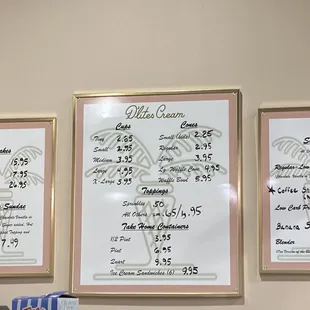 D'lites Cream
Cups
Tiny 2.65
Small 2.95
Medium 3.95
Large 4.95
X-Large 5.95
Cones
Small (kids) 2.25
Regular 2.95
Large 3.95
Lg. Waffle Cone 4.95
Waffle Bowl 5.95
Toppings
Sprinkles .50
All Others .65/4.95
Take Home Containers
1/2 Pint 3.95
Pint 6.95
Quart 9.95
Ice Cream Sandwiches (6) 9.95
akes
15.95
17.95
24.95
Sundae
7.49
Regular-Low
Coffee
Low Carb
Banana S
Blender